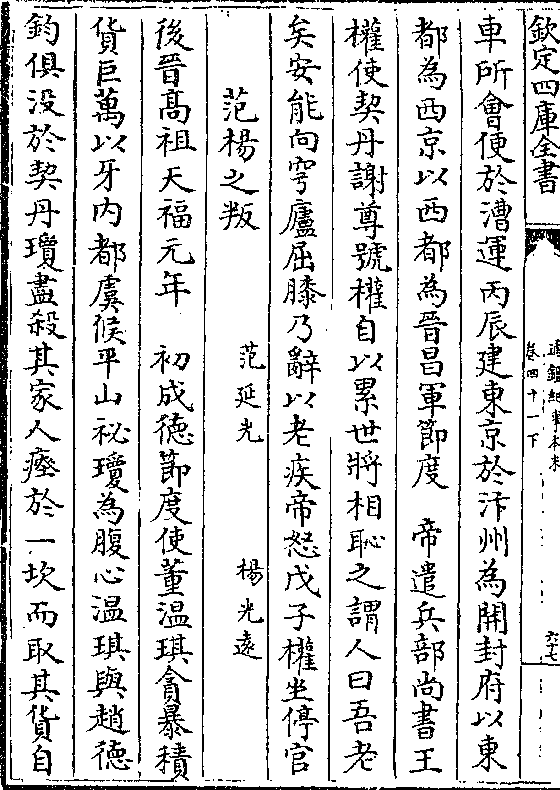 欽定四庫全書
通鑑紀事本末
卷四十一下
六十七
車所會便於漕運丙辰建東京於汴州為開封府以東
都為西京以西都為晉昌軍節度　帝遣兵部尚書王
權使契丹謝尊號權自以累世將相恥之謂人曰吾老
矣安能向穹廬屈膝乃辭以老疾帝怒戊子權坐停官
范楊之叛　范延光　楊光遠
後晉髙祖天福元年　初成德節度使董温琪貪暴積
貨巨萬以牙内都虞候平山祕瓊為腹心温琪與趙德
鈞俱没於契丹瓊盡殺其家人瘞於一坎而取其貨自